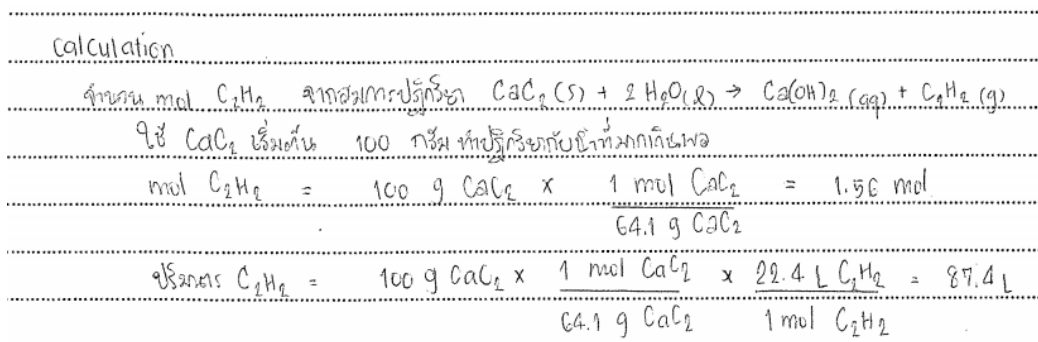 Calculation
จำนวน mol C₂H₂ จากสมการปฏิกิริยา CaC₂ (s) + 2 H₂O(l) → Ca(OH)₂ (aq) + C₂H₂ (g)
ใช้ CaC₂ เริ่มต้น 100 กรัม ทำปฏิกิริยากับน้ำที่มากเกินพอ
mol C₂H₂ = 100 g CaC₂ x 1 mol CaC₂ = 1.56 mol
64.1 g CaC₂
ปริมาตร C₂H₂ = 100 g CaC₂ x 1 mol CaC₂ x 22.4 L C₂H₂ = 87.4 L
64.1 g CaC₂ 1 mol C₂H₂